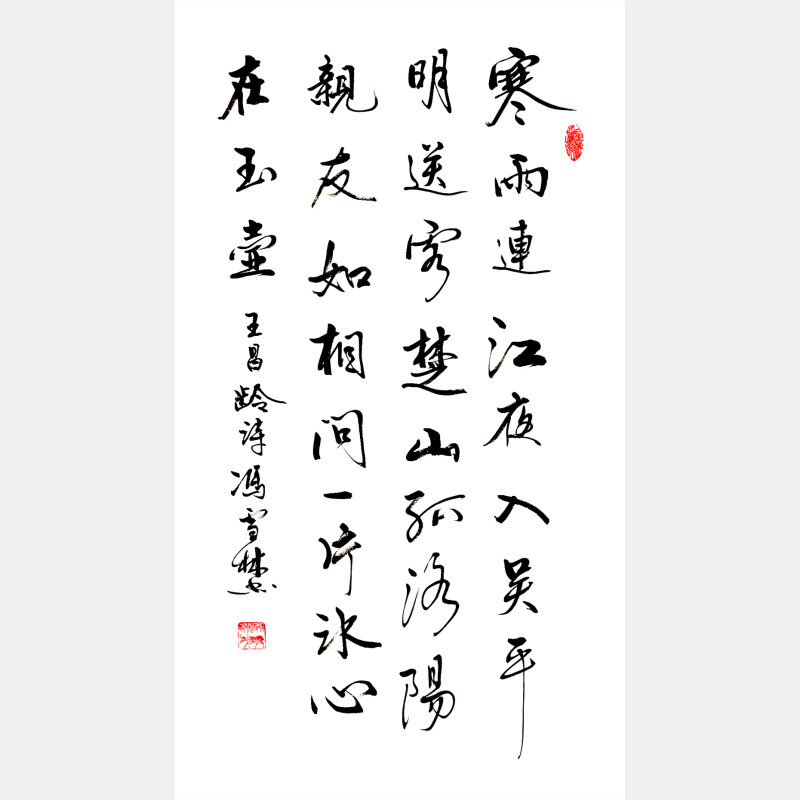 寒雨連江夜入吴平
明送客楚山孤洛陽
親友如相问一片冰心
在玉壶
王昌龄诗冯雪林书